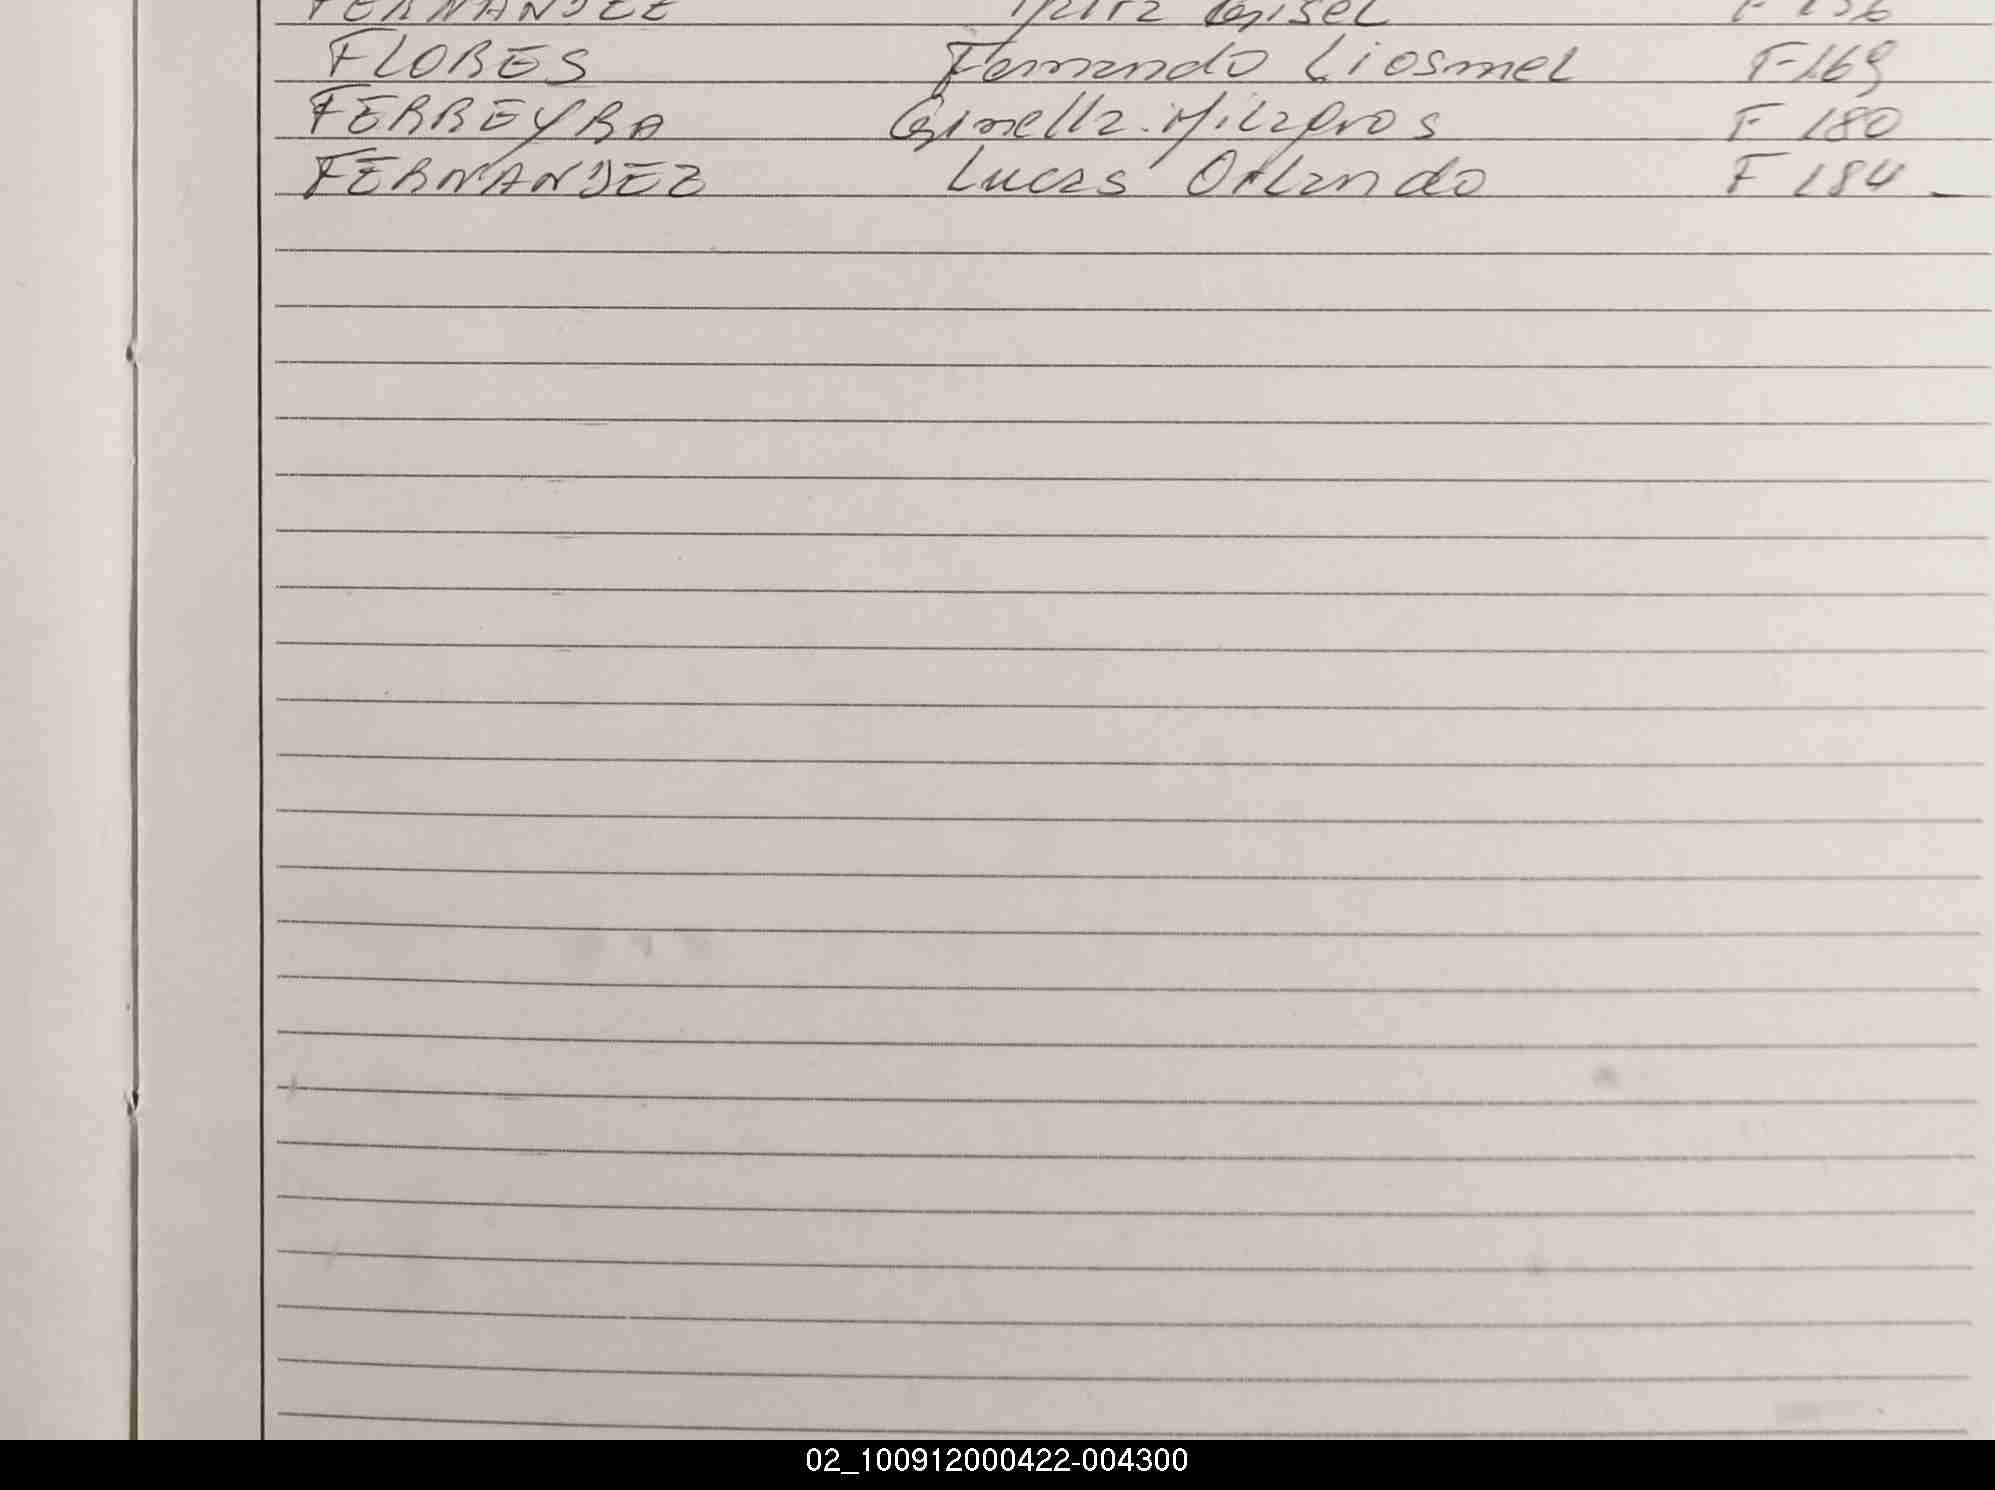 FERNANDEZ Gisel F 156
FLORES Fernando Liosmel F-169
FERREYRA Ginella Milagros F 180
FERNANDEZ Lucas Orlando F 184
02_100912000422-004300